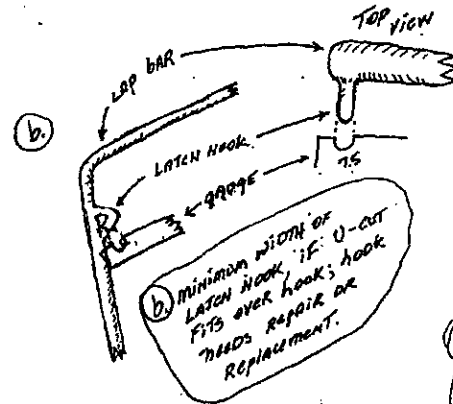 TOP
VIEW
LAP BAR
b.
LATCH HOOK
GAUGE
7.5
b. MINIMUM WIDTH OF
LATCH HOOK IF U-CUT
FITS OVER HOOK; HOOK
NEEDS REPAIR OR
REPLACEMENT.